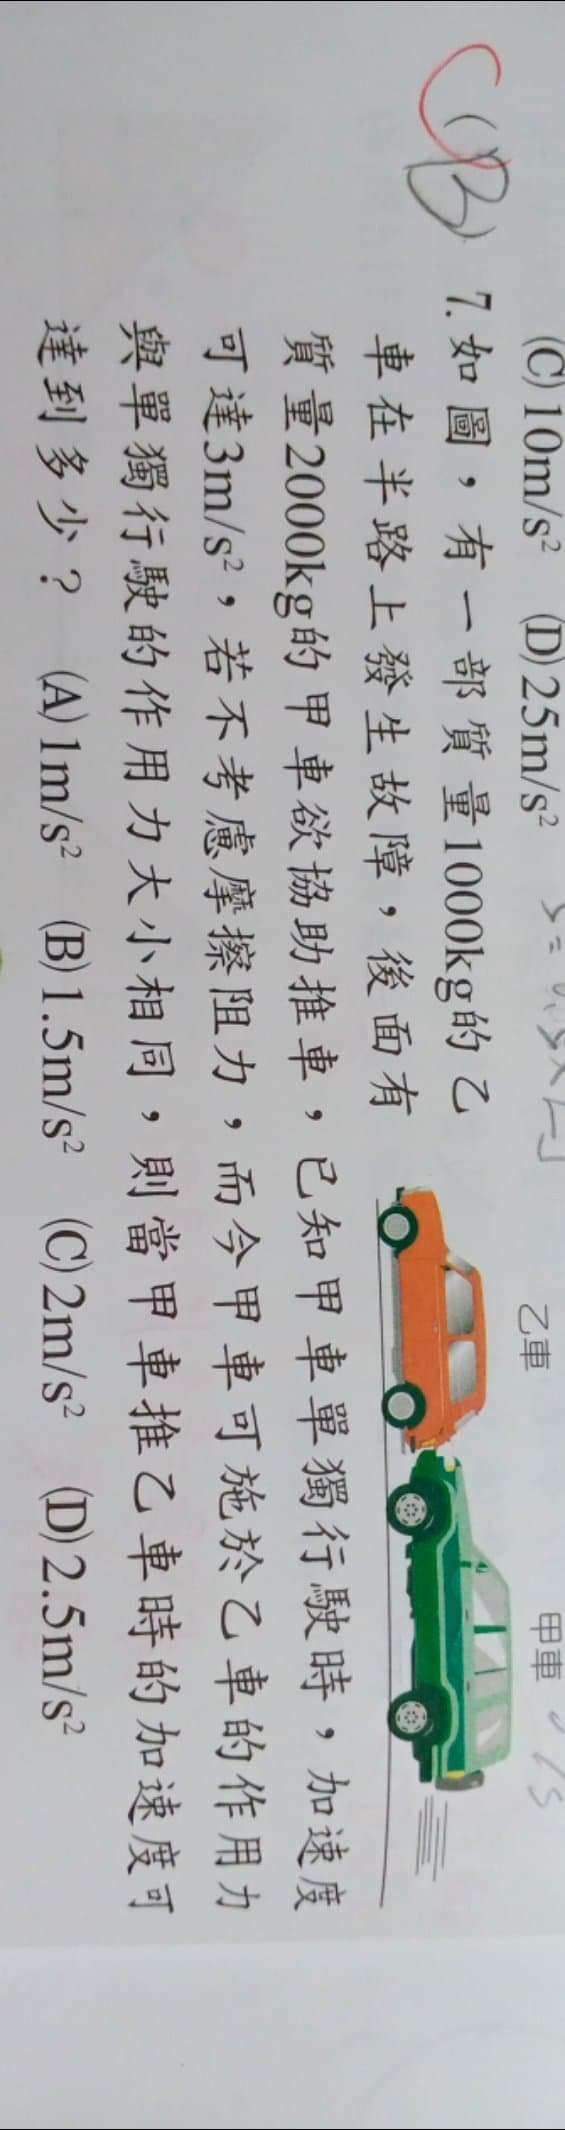 (C)10m/s² (D)25m/s²
乙車 甲車
(B) 7.如圖，有一部質量1000kg的乙
車在半路上發生故障，後面有
質量2000kg的甲車欲協助推車，已知甲車單獨行駛時，加速度
可達3m/s²，若不考慮摩擦阻力，而今甲車可施於乙車的作用力
與單獨行駛的作用力大小相同，則當甲車推乙車時的加速度可
達到多少？ (A)1m/s² (B)1.5m/s² (C)2m/s² (D)2.5m/s²